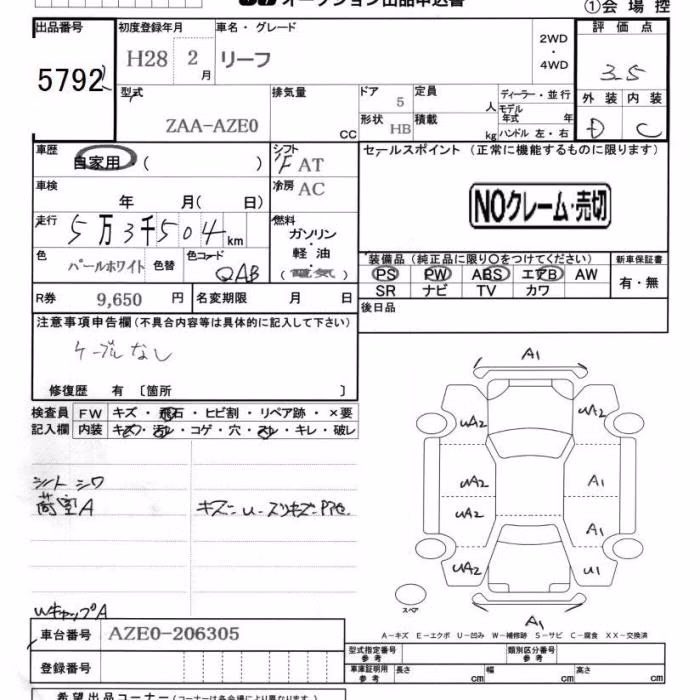 オークション出品申込書
①会場控
出品番号 初度登録年月 車名・グレード 2WD・4WD 評価点
5792 H28 2月 リーフ 3.5
型式 排気量 ドア 定員 ディーラー・並行 外装 内装
ZAA-AZE0 cc 5 人 モデル年式 年 D C
形状 HB 積載 kg ハンドル 左・右
車歴 シフト セールスポイント (正常に機能するものに限ります)
自家用 ( ) F AT
車検 冷房 AC NOクレーム・売切
年 月( 日)
走行 燃料
5万3千504km ガソリン・軽油・(電気)
色 パールホワイト 色替 色コード QAB
装備品 (純正品に限り○をつけてください) 新車保証書
PS PW ABS エアB AW 有・無
SR ナビ TV カワ
R券 9,650円 名変期限 月 日
後日品
注意事項申告欄(不具合内容等は具体的に記入して下さい)
ケーブルなし
修復歴 有 〔箇所 〕
検査員 FW キズ・飛石・ヒビ割・リペア跡・×要
記入欄 内装 キズ・汚レ・コゲ・穴・スレ・キレ・破レ
シート シワ
荷室A キズ
WキャップA
A1
UA2 UA2
UA2 A1
UA2 A1
UA2 U1
スペア
A1
A-キズ E-エクボ U-凹み W-補修跡 S-サビ C-腐食 XX-交換済
車台番号 AZE0-206305
型式指定番号 参考 類別区分番号 参考
登録番号
車庫証明用 参考 長さ cm 幅 cm 高さ cm
希望出品コーナー(コーナーは各会場により異なります。)